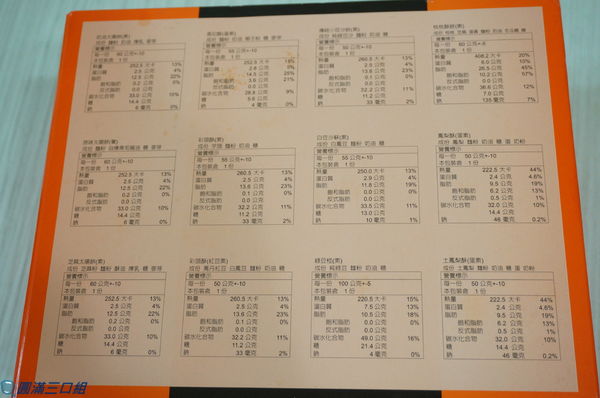 奶油太陽餅(素)
成份 麵粉 奶油 煉乳 糖 麥芽
營養標示
每一份 60 公克+-10
本包裝含 1 份
熱量 252.5 大卡 13%
蛋白質 2.5 公克 4%
脂肪 12.5 公克 22%
飽和脂肪 0.2 公克 0%
反式脂肪 0.0 公克
碳水化合物 33.0 公克 10%
糖 14.4 公克
鈉 6 毫克 0%
成份 麵粉 奶油 椰子粉 糖 麥芽
營養標示
每一份 55 公克+-10
本包裝含 1 份
熱量 252.5 大卡
蛋白質 2.6 公克
脂肪 14.5 公克 25%
飽和脂肪 3.6 公克 21%
反式脂肪 0.0 公克
碳水化合物 28.8 公克 9%
糖 5.6 公克
鈉 4 毫克 0%
傳統小豆沙餅(素)
成份 純綠豆沙 麵粉 奶油 糖
營養標示
每一份 50 公克+-10
本包裝含 1 份
熱量 260.5 大卡 13%
蛋白質 2.4 公克 4%
脂肪 13.6 公克 23%
飽和脂肪 0.1 公克 0%
反式脂肪 0.0 公克
碳水化合物 32.2 公克 11%
糖 11.2 公克
鈉 33 毫克 2%
核桃酥餅(素)
營養標示
每一份 60 公克+-5
本包裝含 1 份
熱量 408.2 大卡 20%
蛋白質 6.0 公克 10%
脂肪 26.5 公克 45%
飽和脂肪 10.2 公克 57%
反式脂肪 0.0 公克
碳水化合物 36.6 公克 12%
糖 7.0 公克
鈉 135 毫克 7%
營養標示
每一份 60 公克+-10
本包裝含 1 份
熱量 252.5 大卡 13%
蛋白質 2.5 公克 4%
脂肪 12.5 公克 22%
飽和脂肪 0.2 公克 0%
反式脂肪 0.0 公克
碳水化合物 33.0 公克 10%
糖 14.4 公克
鈉 6 毫克 0%
彩頭酥(素)
成份 芋頭 麵粉 奶油 糖
營養標示
每一份 55 公克+-10
本包裝含 1 份
熱量 260.5 大卡 13%
蛋白質 2.4 公克 4%
脂肪 13.6 公克 23%
飽和脂肪 0.1 公克 0%
反式脂肪 0.0 公克
碳水化合物 32.2 公克 11%
糖 11.2 公克
鈉 33 毫克 2%
白豆沙酥(素)
成份 白鳳豆 麵粉 奶油 糖
營養標示
每一份 55 公克+-10
本包裝含 1 份
熱量 250.0 大卡 13%
蛋白質 2.9 公克 5%
脂肪 11.8 公克 19%
飽和脂肪 0.1 公克 0%
反式脂肪 0.0 公克
碳水化合物 33.5 公克 11%
糖 13.0 公克
鈉 10 毫克 1%
鳳梨酥(蛋素)
成份 鳳梨 麵粉 奶油 糖 蛋 奶粉
營養標示
每一份 50 公克+-10
本包裝含 1 份
熱量 222.5 大卡 44%
蛋白質 2.4 公克 4.6%
脂肪 9.5 公克 19%
飽和脂肪 6.2 公克 13%
反式脂肪 0.5 公克 1%
碳水化合物 32.0 公克 10%
糖 14.4 公克
鈉 46 毫克 0.2%
芝麻太陽餅(素)
成份 芝麻粉 麵粉 酥油 煉乳 糖 麥芽
營養標示
每一份 60 公克+-10
本包裝含 1 份
熱量 252.5 大卡 13%
蛋白質 2.5 公克 4%
脂肪 12.5 公克 22%
飽和脂肪 0.2 公克 0%
反式脂肪 0.0 公克
碳水化合物 33.0 公克 10%
糖 14.4 公克
鈉 6 毫克 0%
彩頭酥(紅豆素)
成份 萬丹紅豆 白鳳豆 麵粉 奶油 糖
營養標示
每一份 50 公克+-10
本包裝含 1 份
熱量 260.5 大卡 13%
蛋白質 2.4 公克 4%
脂肪 13.6 公克 23%
飽和脂肪 0.1 公克 0%
反式脂肪 0.0 公克
碳水化合物 32.2 公克 11%
糖 11.2 公克
鈉 33 毫克 2%
綠豆椪(素)
成份 純綠豆 麵粉 奶油 糖
營養標示
每一份 100 公克+-5
本包裝含 1 份
熱量 220.5 大卡 15%
蛋白質 7.5 公克 13%
脂肪 10.5 公克 18%
飽和脂肪 0.0 公克
反式脂肪 0.0 公克
碳水化合物 49.0 公克 16%
糖 21.4 公克
鈉 4 毫克 0%
土鳳梨酥(蛋素)
成份 土鳳梨 麵粉 奶油 糖 蛋 奶粉
營養標示
每一份 50 公克+-10
本包裝含 1 份
熱量 222.5 大卡 44%
蛋白質 2.4 公克 4.6%
脂肪 9.5 公克 19%
飽和脂肪 6.2 公克 13%
反式脂肪 0.5 公克 1%
碳水化合物 32.0 公克 10%
糖 14.4 公克
鈉 46 毫克 0.2%
圓滿三口組